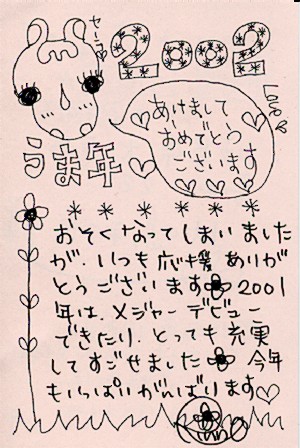 セーノ
2002
Love
あけまして
おめでとう
ございます
うま年
おそくなってしまいました
が、いつも応援ありが
とうございます 2001
年は、メジャーデビュー
できたり、とっても充実
してすごせました 今年
もいっぱいがんばります